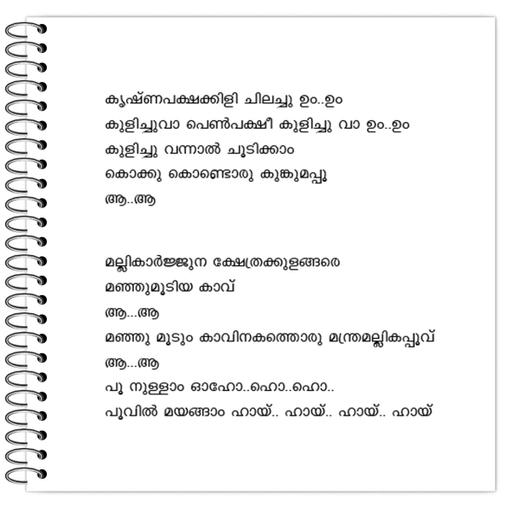 കൃഷ്ണപക്ഷക്കിളി ചിലച്ചു ഉം..ഉം
കുളിച്ചുവാ പെൺപക്ഷീ കുളിച്ചു വാ ഉം..ഉം
കുളിച്ചു വന്നാൽ ചൂടിക്കാം
കൊക്കു കൊണ്ടൊരു കുങ്കുമപ്പൂ
ആ..ആ
മല്ലികാർജ്ജുന ക്ഷേത്രക്കുളങ്ങരെ
മഞ്ഞുമൂടിയ കാവ്
ആ...ആ
മഞ്ഞു മൂടും കാവിനകത്തൊരു മന്ത്രമല്ലികപ്പൂവ്
ആ...ആ
പൂ നുള്ളാം ഓഹോ..ഹൊ..ഹൊ..
പൂവിൽ മയങ്ങാം ഹായ്.. ഹായ്.. ഹായ്.. ഹായ്